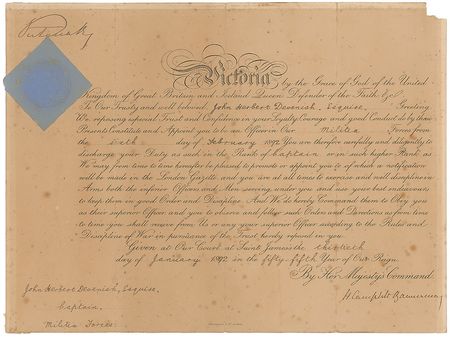 Victoria by the Grace of God of the United
Kingdom of Great Britain and Ireland Queen, Defender of the Faith &c
To Our Trusty and well beloved John Herbert Devenish, Esquire, Greeting
We reposing especial Trust and Confidence in your Loyalty Courage and good Conduct do by these
Presents Constitute and Appoint you to be an Officer in Our Militia Forces from
the sixth day of February 1892 You are therefore carefully and diligently to
discharge your Duty as such in the Rank of Captain or in such higher Rank as
We may from time to time hereafter be pleased to promote or appoint you to of which a notification
will be made in the London Gazette and you are at all times to exercise and well discipline in
Arms both the inferior Officers and Men serving under you and use your best endeavours
to keep them in good Order and Discipline And We do hereby Command them to Obey you
as their superior Officer and you to observe and follow such Orders and Directions as from time
to time you shall receive from Us or any your superior Officer according to the Rules and
Discipline of War in pursuance of the Trust hereby reposed in you
Given at Our Court at Saint James's the thirtieth
day of January 1892 in the fifty-fifth Year of Our Reign
By Her Majesty's Command
John Herbert Devenish, Esquire,
Captain,
Militia Forces.
H Campbell Bannerman